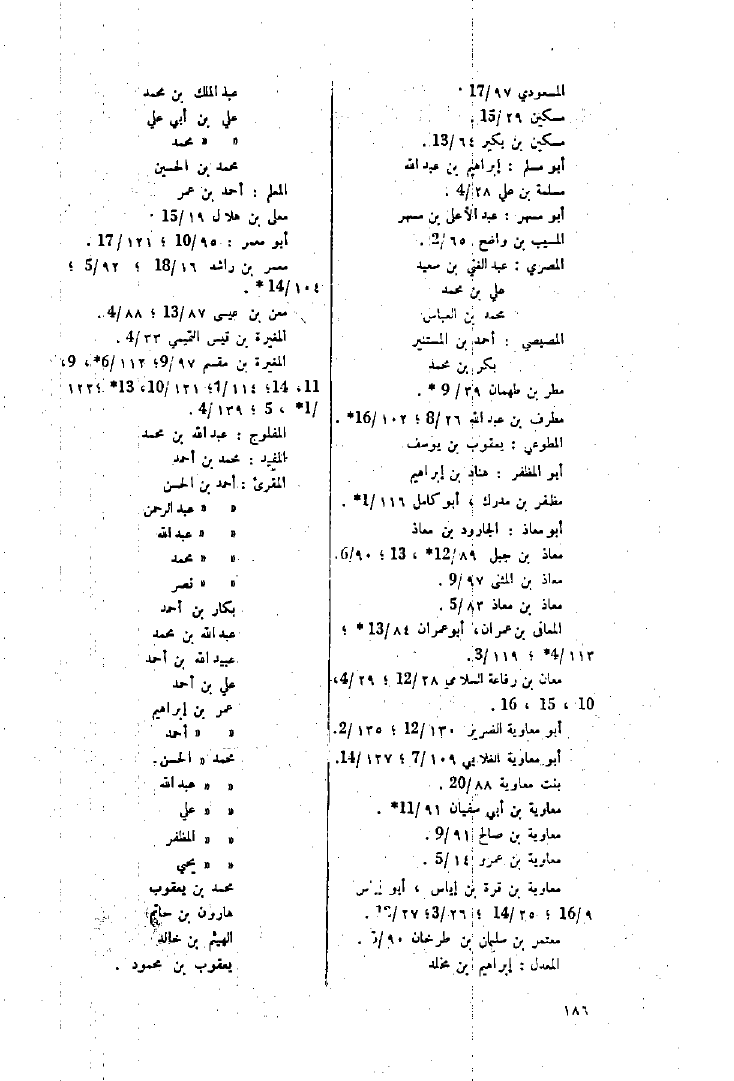 المسعودي ٩٧/17 .
مسكين ٢٩/15 .
مسكين بن بكير ٦٤/13 .
أبو مسلم : إبراهيم بن عبد الله
مسلمة بن علي ٢٨/4 .
أبو مسهر : عبد الأعلى بن مسهر
المسيب بن واضح ٦٥/2 .
المصري : عبد الغني بن سعيد
علي بن محمد
محمد بن العباس
المصيصي : أحمد بن المستنير
بكر بن محمد
مطر بن طهمان ٣٩/9 * .
مطرف بن عبد الله ٢٦/8 ؛ ١٠٢/16* .
المطوعي : يعقوب بن يوسف
أبو المظفر : هناد بن إبراهيم
مظفر بن مدرك ، أبو كامل ١١٦/1* .
أبو معاذ : الجارود بن معاذ
معاذ بن جبل ٨٩/12* ، 13 ؛ ٩٠/6.
معاذ بن المثنى ٩٧/9 .
معاذ بن معاذ ٨٣/5 .
المعافى بن عمران، أبو عمران ٨٤/13* ؛
١١٣/4* ؛ ١١٩/3.
معان بن رفاعة السلامي ٢٨/12 ؛ ٢٩/4،
10 ، 15 ، 16 .
أبو معاوية الضرير ١٣٠/12 ؛ ١٣٥/2.
أبو معاوية الغلابي ١٠٩/7 ؛ ١٢٧/14.
بنت معاوية ٨٨/20 .
معاوية بن أبي سفيان ٩١/11* .
معاوية بن صالح ٩١/9 .
معاوية بن عمرو ١٤/5 .
معاوية بن قرة بن إياس ، أبو إياس
٩/16 ؛ ٢٥/14 ؛ ٢٦/3؛ ٢٧/ .
معتمر بن سليمان بن طرخان ٩٠/ .
المعدل : إبراهيم بن مخلد
عبد الملك بن محمد
علي بن أبي علي
» » محمد
محمد بن الحسين
المعلم : أحمد بن عمر
معلى بن هلال ١٩/15 .
أبو معمر : ٩٥/10 ؛ ١٢١/17 .
معمر بن راشد ١٦/18 ؛ ٩٢/5 ؛
١٠٤/14 * .
معن بن عيسى ٨٧/13 ؛ ٨٨/4.
المغيرة بن قيس التميمي ٣٣/4 .
المغيرة بن مقسم ٩٧/9؛ ١١٢/6*، 9،
11، 14؛ ١١٤/7؛ ١٢١/10، 13* ؛١٢٢
/1* ، 5 ؛ ١٣٩/4 .
المفلوج : عبد الله بن محمد
المفيد : محمد بن أحمد
المقرئ : أحمد بن الحسن
» » عبد الرحمن
» » عبد الله
» » محمد
» » نصر
بكار بن أحمد
عبد الله بن محمد
عبيد الله بن أحمد
علي بن أحمد
عمر بن إبراهيم
» » أحمد
محمد » الحسن
» » عبد الله
» » علي
» » المظفر
» » يحيى
محمد بن يعقوب
هارون بن حاتم
الهيثم بن خالد
يعقوب بن محمود .
١٨٦